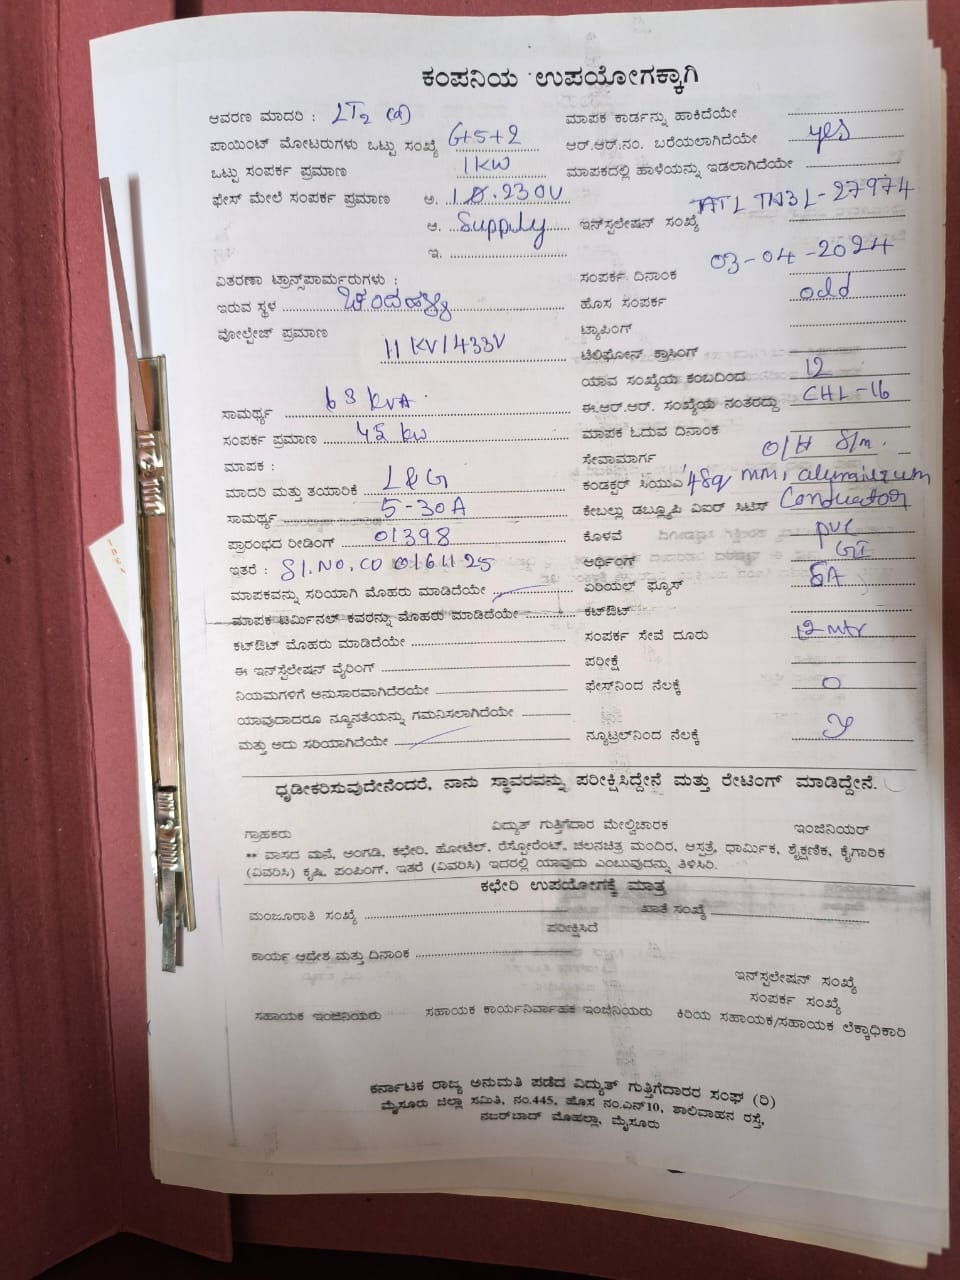 ಕಂಪನಿಯ ಉಪಯೋಗಕ್ಕಾಗಿ
ಆವರಣ ಮಾದರಿ : LT2 (a)
ಮಾಪಕ ಕಾರ್ಡನ್ನು ಹಾಕಿದೆಯೇ
ಪಾಯಿಂಟ್ ಮೋಟರುಗಳು ಒಟ್ಟು ಸಂಖ್ಯೆ G+5+2
ಆರ್.ಆರ್.ನಂ. ಬರೆಯಲಾಗಿದೆಯೇ yes
ಒಟ್ಟು ಸಂಪರ್ಕ ಪ್ರಮಾಣ 1 KW
ಮಾಪಕದಲ್ಲಿ ಹಾಳೆಯನ್ನು ಇಡಲಾಗಿದೆಯೇ
ಫೇಸ್ ಮೇಲೆ ಸಂಪರ್ಕ ಪ್ರಮಾಣ ಅ. 1 Ø. 230V
ಆ. Supply
ಇನ್‌ಸ್ಟಲೇಷನ್ ಸಂಖ್ಯೆ 27974
ಇ.
ವಿತರಣಾ ಟ್ರಾನ್ಸ್‌ಪಾರ್ಮರುಗಳು :
ಸಂಪರ್ಕ ದಿನಾಂಕ 03-04-2024
ಇರುವ ಸ್ಥಳ
ಹೊಸ ಸಂಪರ್ಕ odd
ವೋಲ್ಟೇಜ್ ಪ್ರಮಾಣ 11 KV/433V
ಟ್ಯಾಪಿಂಗ್
ಟೆಲಿಫೋನ್ ಕ್ರಾಸಿಂಗ್
ಯಾವ ಸಂಖ್ಯೆಯ ಕಂಬದಿಂದ 12
ಸಾಮರ್ಥ್ಯ 63 KVA
ಈ.ಆರ್.ಆರ್. ಸಂಖ್ಯೆಯ ನಂತರದ್ದು CHL-16
ಸಂಪರ್ಕ ಪ್ರಮಾಣ 45 kw
ಮಾಪಕ ಓದುವ ದಿನಾಂಕ
ಮಾಪಕ :
ಸೇವಾಮಾರ್ಗ O/H S/m.
ಮಾದರಿ ಮತ್ತು ತಯಾರಿಕೆ L&G
ಕಂಡಕ್ಟರ್ ಸಿಯುಎ 4sq mm, aluminium
ಸಾಮರ್ಥ್ಯ 5-30A
ಕೇಬಲ್ಲು ಡಬ್ಲ್ಯೂಪಿ ವಿಐರ್ ಸಿಟಿಸ್ Conductor
ಪ್ರಾರಂಭದ ರೀಡಿಂಗ್ 01398
ಕೊಳವೆ PVC
ಇತರೆ : Sl.No. CO 0161125
ಅರ್ಥಿಂಗ್ GI
ಮಾಪಕವನ್ನು ಸರಿಯಾಗಿ ಮೊಹರು ಮಾಡಿದೆಯೇ
ಏರಿಯಲ್ ಫ್ಯೂಸ್ 5A
ಮಾಪಕ ಟರ್ಮಿನಲ್ ಕವರನ್ನು ಮೊಹರು ಮಾಡಿದೆಯೇ
ಕಟ್‌ಔಟ್
ಕಟ್‌ಔಟ್ ಮೊಹರು ಮಾಡಿದೆಯೇ
ಸಂಪರ್ಕ ಸೇವೆ ದೂರು 12 mtr
ಈ ಇನ್‌ಸ್ಟೆಲೇಷನ್ ವೈರಿಂಗ್
ಪರೀಕ್ಷೆ
ನಿಯಮಗಳಿಗೆ ಅನುಸಾರವಾಗಿದೆರಯೇ
ಫೇಸ್‌ನಿಂದ ನೆಲಕ್ಕೆ 0
ಯಾವುದಾದರೂ ನ್ಯೂನತೆಯನ್ನು ಗಮನಿಸಲಾಗಿದೆಯೇ
ಮತ್ತು ಅದು ಸರಿಯಾಗಿದೆಯೇ
ನ್ಯೂಟ್ರಲ್‌ನಿಂದ ನೆಲಕ್ಕೆ
ಧೃಡೀಕರಿಸುವುದೇನೆಂದರೆ, ನಾನು ಸ್ಥಾವರವನ್ನು ಪರೀಕ್ಷಿಸಿದ್ದೇನೆ ಮತ್ತು ರೇಟಿಂಗ್ ಮಾಡಿದ್ದೇನೆ.
ಗ್ರಾಹಕರು ವಿದ್ಯುತ್ ಗುತ್ತಿಗೆದಾರ ಮೇಲ್ವಿಚಾರಕ ಇಂಜಿನಿಯರ್
** ವಾಸದ ಮನೆ, ಅಂಗಡಿ, ಕಛೇರಿ, ಹೋಟೆಲ್, ರೆಸ್ಟೋರೆಂಟ್, ಚಲನಚಿತ್ರ ಮಂದಿರ, ಆಸ್ಪತ್ರೆ, ಧಾರ್ಮಿಕ, ಶೈಕ್ಷಣಿಕ, ಕೈಗಾರಿಕ
(ವಿವರಿಸಿ) ಕೃಷಿ, ಪಂಪಿಂಗ್, ಇತರೆ (ವಿವರಿಸಿ) ಇದರಲ್ಲಿ ಯಾವುದು ಎಂಬುವುದನ್ನು ತಿಳಿಸಿರಿ.
ಕಛೇರಿ ಉಪಯೋಗಕ್ಕೆ ಮಾತ್ರ
ಮಂಜೂರಾತಿ ಸಂಖ್ಯೆ ಖಾತೆ ಸಂಖ್ಯೆ
ಪರೀಕ್ಷಿಸಿದೆ
ಕಾರ್ಯ ಆದೇಶ ಮತ್ತು ದಿನಾಂಕ
ಇನ್‌ಸ್ಟಲೇಷನ್ ಸಂಖ್ಯೆ
ಸಂಪರ್ಕ ಸಂಖ್ಯೆ
ಸಹಾಯಕ ಇಂಜಿನಿಯರು ಸಹಾಯಕ ಕಾರ್ಯನಿರ್ವಾಹಕ ಇಂಜಿನಿಯರು ಕಿರಿಯ ಸಹಾಯಕ/ಸಹಾಯಕ ಲೆಕ್ಕಾಧಿಕಾರಿ
ಕರ್ನಾಟಕ ರಾಜ್ಯ ಅನುಮತಿ ಪಡೆದ ವಿದ್ಯುತ್ ಗುತ್ತಿಗೆದಾರರ ಸಂಘ (ರಿ)
ಮೈಸೂರು ಜಿಲ್ಲಾ ಸಮಿತಿ, ನಂ.445, ಹೊಸ ನಂ.ಎನ್10, ಶಾಲಿವಾಹನ ರಸ್ತೆ,
ನಜರ್‌ಬಾದ್ ಮೊಹಲ್ಲಾ, ಮೈಸೂರು